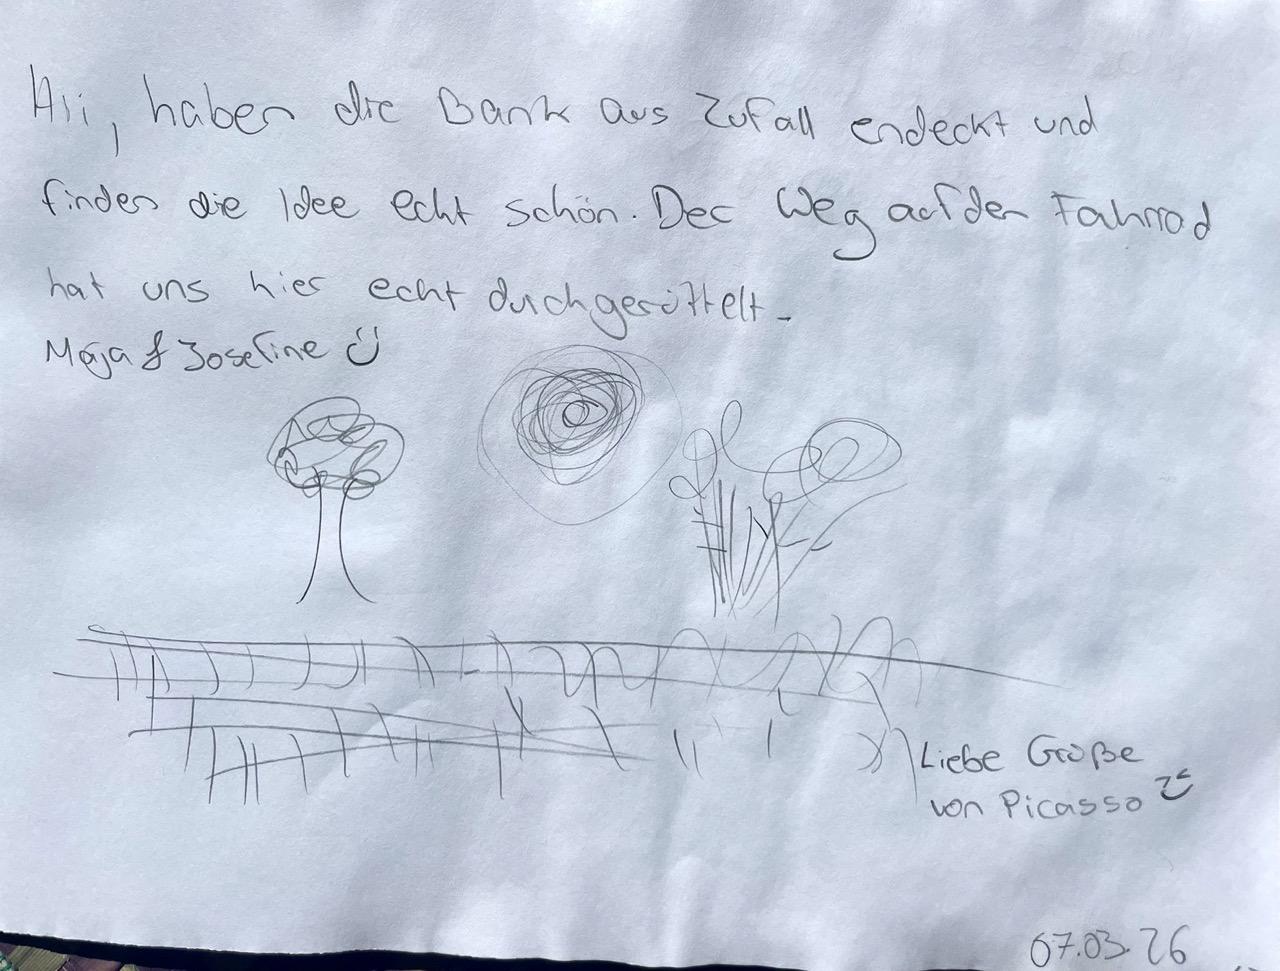 Hi, haben die Bank aus Zufall endeckt und
finden die Idee echt schön. Der Weg auf den Fahrrad
hat uns hier echt durchgerüttelt.
Maja & Josefine
Liebe Grüße
von Picasso
07.03.26